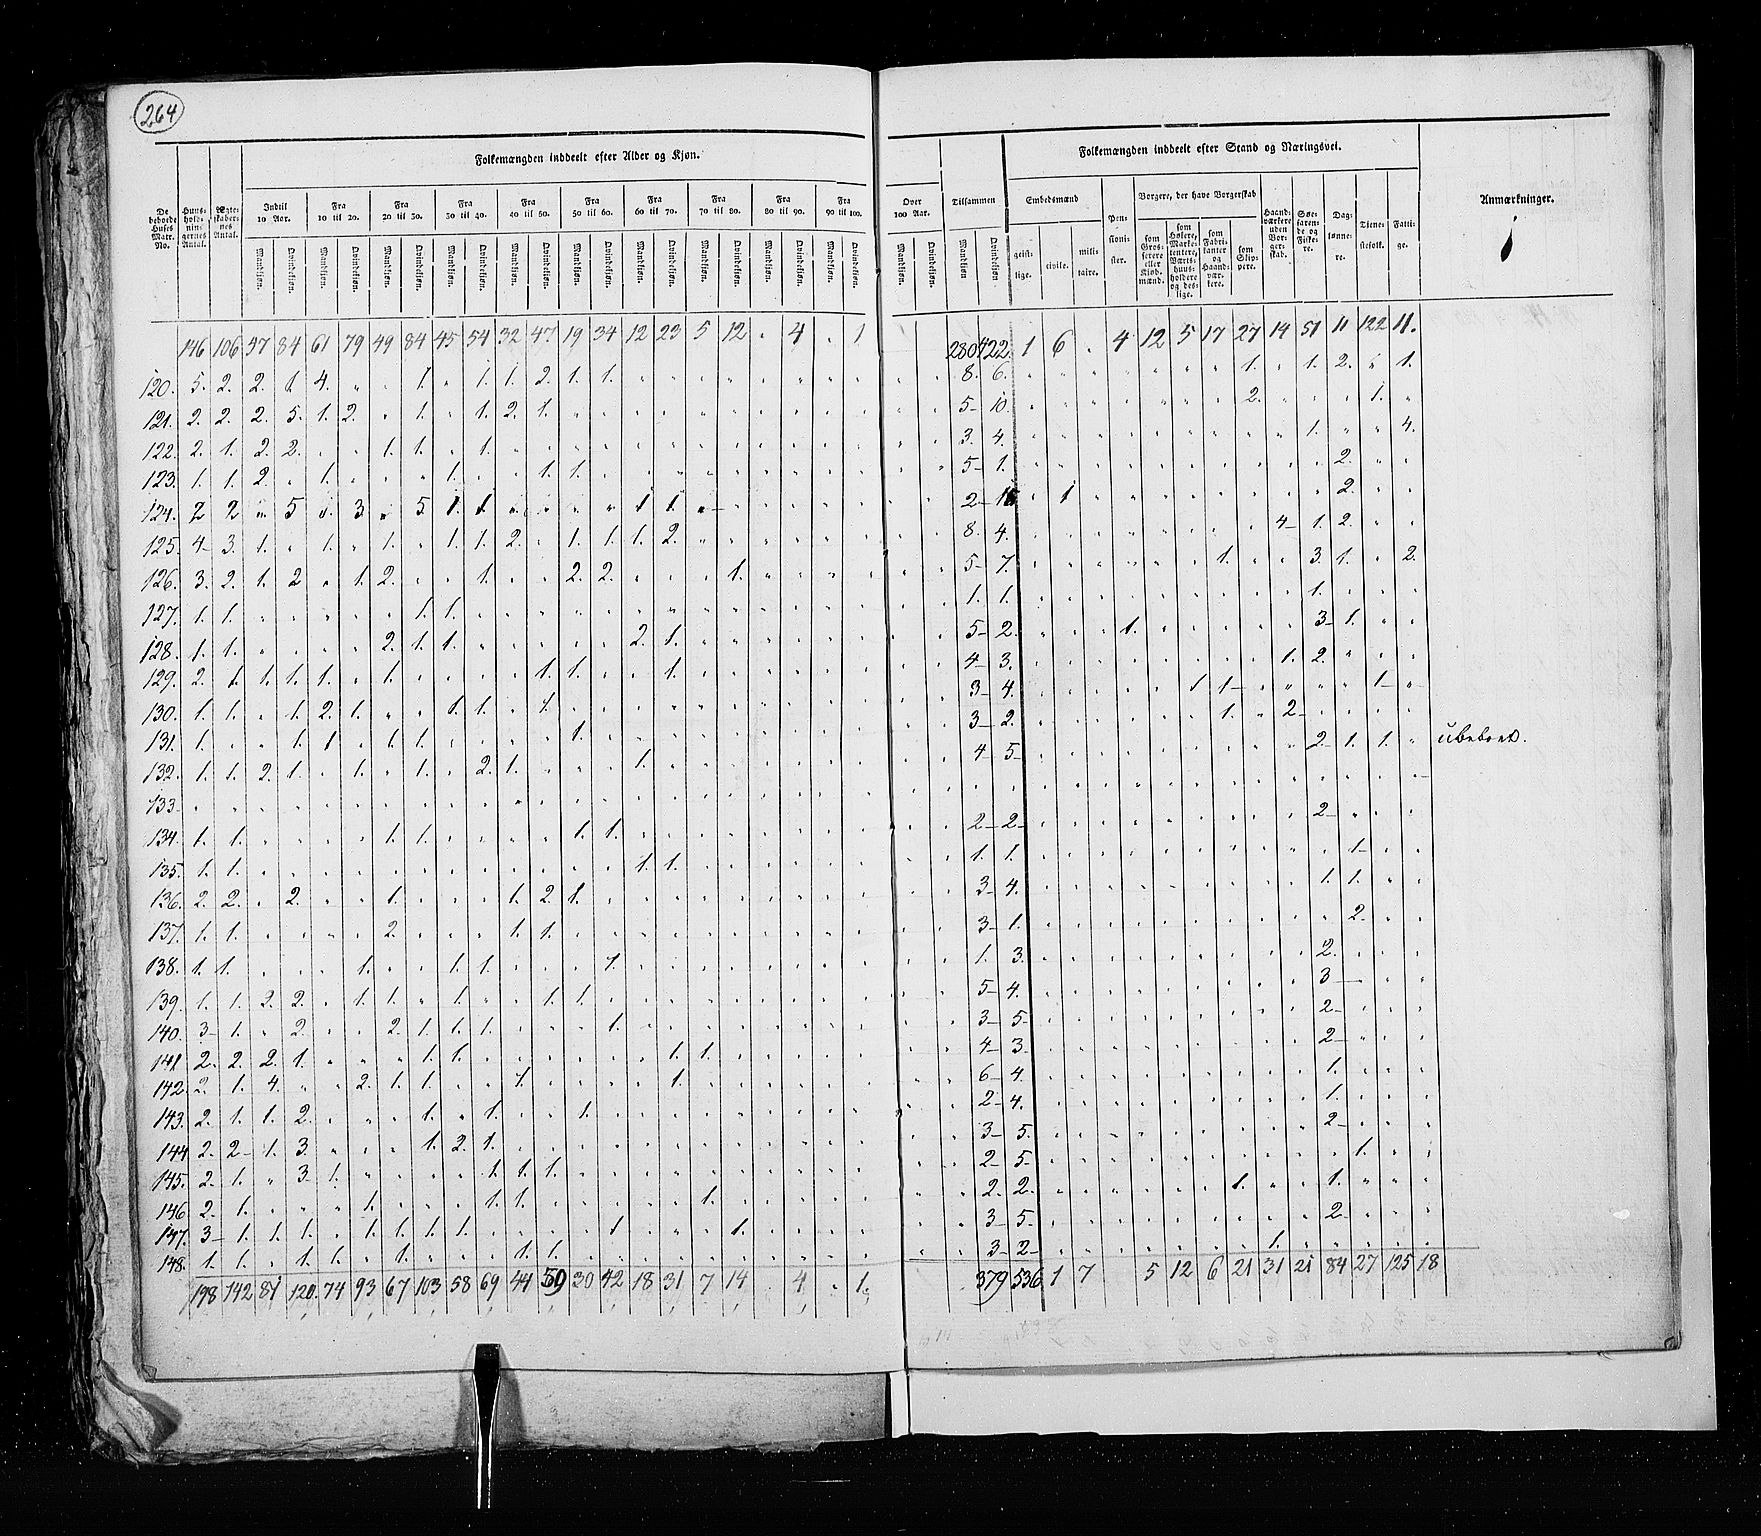 264
Folkemængden inddeelt efter Alder og Kjøn. Folkemængden inddeelt efter Stand og Næringsvei.
De beboede Huses Matr. No. Huus-hold-nin-gernes Antal. Ægte-skaber-nes Antal. Indtil 10 Aar. Fra 10 til 20. Fra 20 til 30. Fra 30 til 40. Fra 40 til 50. Fra 50 til 60. Fra 60 til 70. Fra 70 til 80. Fra 80 til 90. Fra 90 til 100. Over 100 Aar. Tilsammen Embedsmænd Pen-sioni-ster. Borgere, der have Borgerskab Haand-værkere uden Bor-ger-skab. Søe-farende og Fiske-re. Dag-lønne-re. Tjene-stefolk. Fatti-ge. Anmærkninger.
Mandkjøn. Qvindekjøn. Mandkjøn. Qvindekjøn. Mandkjøn. Qvindekjøn. Mandkjøn. Qvindekjøn. Mandkjøn. Qvindekjøn. Mandkjøn. Qvindekjøn. Mandkjøn. Qvindekjøn. Mandkjøn. Qvindekjøn. Mandkjøn. Qvindekjøn. Mandkjøn. Qvindekjøn. Mandkjøn. Qvindekjøn. Mandkjøn Qvindekjøn geist-lige. civile. mili-taire. som Gros-serere eller Kjøb-mænd. som Høkere, Marke-tentere, Værts-huus-holdere og des-lige. som Fabri-kanter og Haand-vær-kere. som Skip-pere.
146 106 57 84 61 79 49 84 45 54 32 47 19 34 12 23 5 12 . 4 . 1 280 422 1 6 . 4 12 5 17 27 14 51 11 122 11.
120. 5. 2. 2. 1. 4. " " 1. " 1. 1. 2. 1. 1. 8. 6. 1. " 1. 2. " 1.
121. 2. 2. 2. 5. 1. 2. " 1. " 1. 2. 1. 5- 10. 2. 1.
122. 2. 1. 2. 2. " " 1. 1. " 1. 3. 4. 1. " " 4.
123. 1. 1. 2. " 1. " " " 1. " " 1. 1. 5- 1. 2.
124. 2 2 " 5 " 3 " 5 1. 1 " " " " 1 1. 2- 1 2.
125. 4- 3. 1. " 1. " 1. " 1. 1. 2. " 1. 1. 1. 2. 8. 4. 4- 1. 2.
126. 3. 2. 1. 2 " 1. 2. " " 1. " " 2. 2. " " " 1. 5- 7. 1. " " 3. 1. " 2.
127. 1. 1. " " " " " 1. 1. 1. 1. 1.
128. 1. 1. " " " " 2. 1. 1. " " " " " 2. 1. 5- 2. 1. 3- 1.
129. 2. 1. 1. 1. 1. " 1. " " " " 1. 1. " " 1. 4- 3. 1. 2.
130. 1. 1. " 1. 2. 1. " " 1. 1. " 1. 3- 4. 1 1- " " " " 1-
131. 1. " " 1. 1 " 1. 1. " " " " 1. 3- 2. 1. " 2-
132. 1. 1. 2. 1. " 1. " 1. " 2. 1. " " " 1. 4- 5- 2- 1. 1. " ubeboet.
133. " " "
134. 1. 1. " " " " 1. 1. " " " " 1. 1. 2- 2- 2-
135. 1. 1. " " " " " " " " " " " " 1. 1. 1. 1. 1-
136. 2. 2. " 2. " " 1. " " " 1. 2. 1. 3- 4. 1. 1.
137. 1. 1. " " " " 2. " " " 1. 1. 3- 1. 2.
138. 1. 1. " " " 1. " " 1. 1. " " " 1. 1. 3. 2.
139. 1. 1. 2. 2. " 1. 1. " 1. " " 1. 1. 5- 4. 3
140. 3- 1. " 2. " " 2. 1. 1. 1. " " " 1. 3- 5. 2-
141. 2. 2. 2. 1. " " " 1. 1. " " " " " " 1. 1. 4- 3. 2-
142. 2. 1. 4. " " 2. 1. 1. " " 1. " " " " 1. 6- 4. 1.
143. 2. 1. 1. 2. " " " 1. " 1. " " 1. 2- 4. 1.
144. 2. 2- 1. 3. " " " 1. 2. 1. 3- 5. 2-
145. 2. 1. " 3. 1. " " " " 1. 1. 1. 2- 5. 1.
146. 2. 1. " " " 1. " " " 1. 1. " " " " " 1. 2. 2. 1. " " 1.
147. 3- 1. 1. 1. " 1. 1. 1. 1. " " " " 1 " " " 1. 3- 5. 2-
148. 1. 1. " 1. 1. " 1. " " " 1. 1. 3- 2- 1.
198 142 81 120. 74 93 67 103 58 69 44 59 30 42 18 31 7 14 . 4 . 1. 379 536 1 7 5 12 6 21 31 21 84 27 125 18